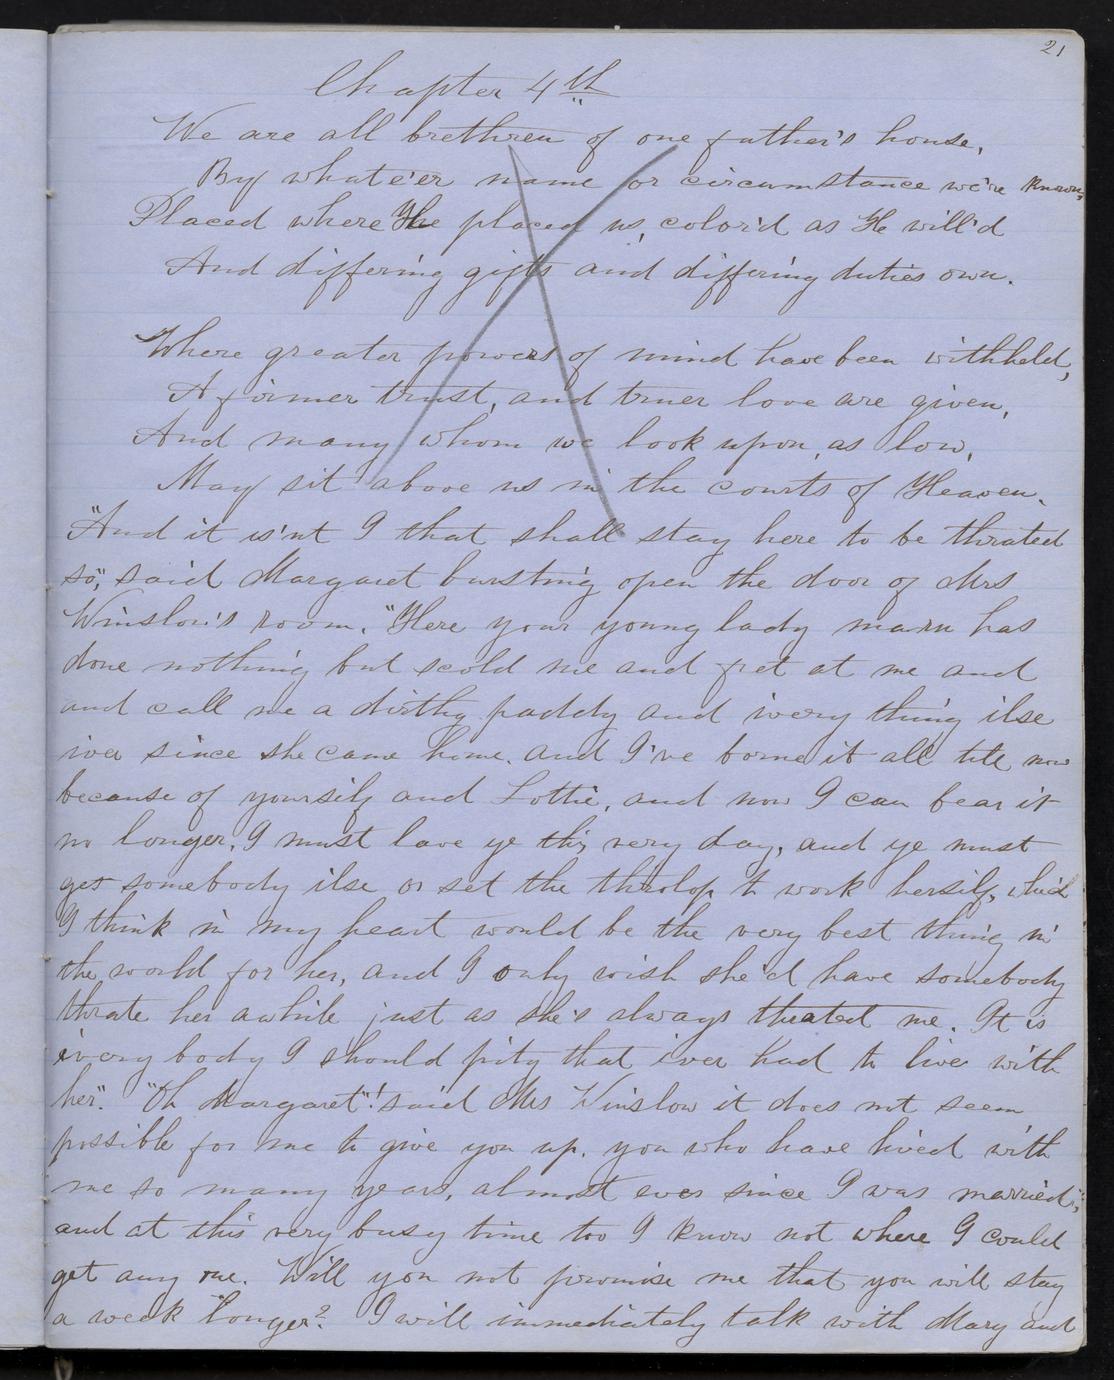 21
Chapter 4th
We are all brethren of one father's house,
By whate'er name or circumstance we're known,
Placed where He placed us, color'd as He will'd
And differing gifts and differing duties own.
Where greater powers of mind have been withheld,
A firmer trust, and truer love are given,
And many whom we look upon, as low,
May sit above us in the courts of Heaven.
"And it is'nt I that shall stay here to be thrated
so", said Margaret bursting open the door of Mrs
Winslow's room. "Here your young lady marm has
done nothing but scold me and fret at me and
and call me a dirthy paddy and ivery thing ilse
iver since she came home. and I've borne it all till now
because of yoursilf and Lottie, and now I can bear it
no longer. I must lave ye this very day, and ye must
get somebody ilse or set the throlop to work hersilf, which
I think in my heart would be the very best thing in
the world for her, and I only wish she'd have somebody
thrate her awhile just as she's always thrated me. It is
ivery body I should pity that iver had to live with
her". "Oh Margaret"! said Mrs Winslow it does not seem
possible for me to give you up. you who have lived with
me so many years, almost ever since I was married;
and at this very busy time too I know not where I could
get any one. Will you not promise me that you will stay
a week longer? I will immediately talk with Mary and